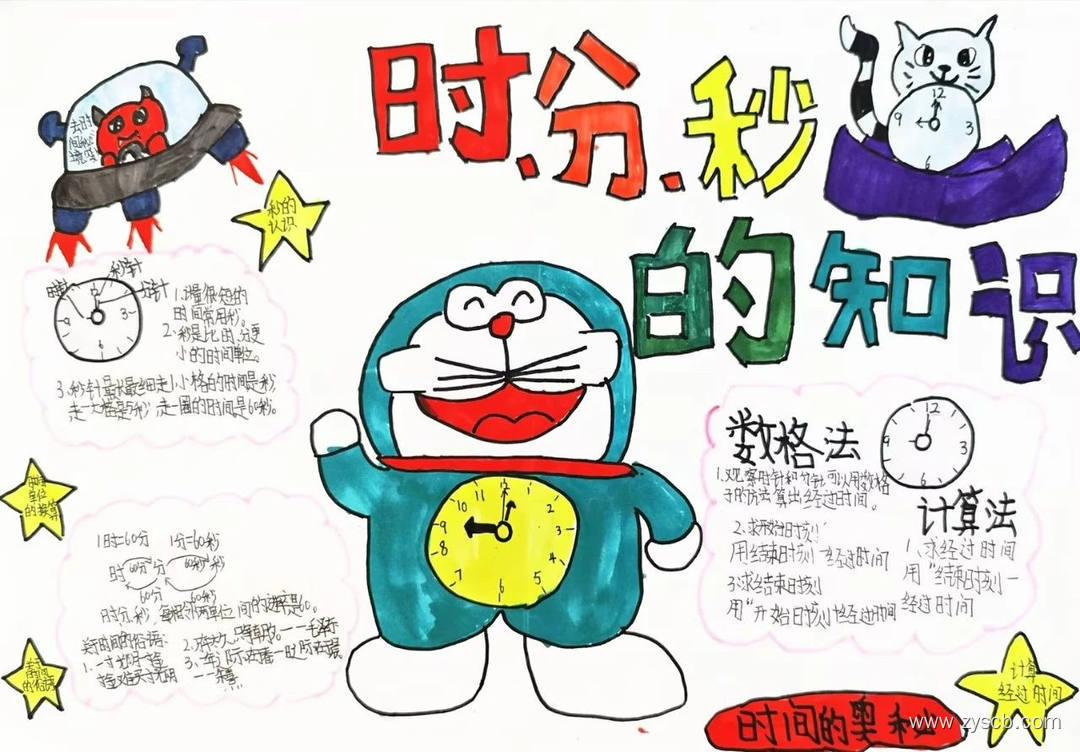 时、分、秒
的知识
去时
间的
秒的
认识
秒针
时针
分针
1.计量很短的
时间常用秒。
2.秒是比时、分更
小的时间单位。
3.秒针最长最细走1小格的时间是1秒
走一大格是5秒,走一圈的时间是60秒。
单位
的换算
1时=60分 1分=60秒
时 分 秒
60分 60秒
时、分、秒,每相邻两单位间的进率是60。
关于时间的俗语:
1.一寸光阴一寸金
寸金难买寸光阴
2.
只争朝夕。——毛泽东
3.一年之际在春一日之际在晨。
的俗语
数格法
1.观察时针和分针,可以用数格
子的方法算出经过时间。
2.求开始时刻:
用结束时刻-经过时间
3.求结束时刻
用"开始时刻+经过时间
计算法
1、求经过时间
用"结束时刻-
经过时间
计算
经过时间
时间的奥秘
12
1
2
3
4
5
6
7
8
9
10
11
www.zyscb.com